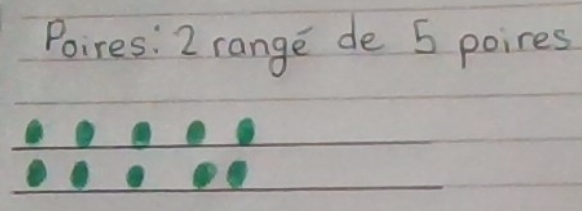 Poires: 2 rangé de 5 poires